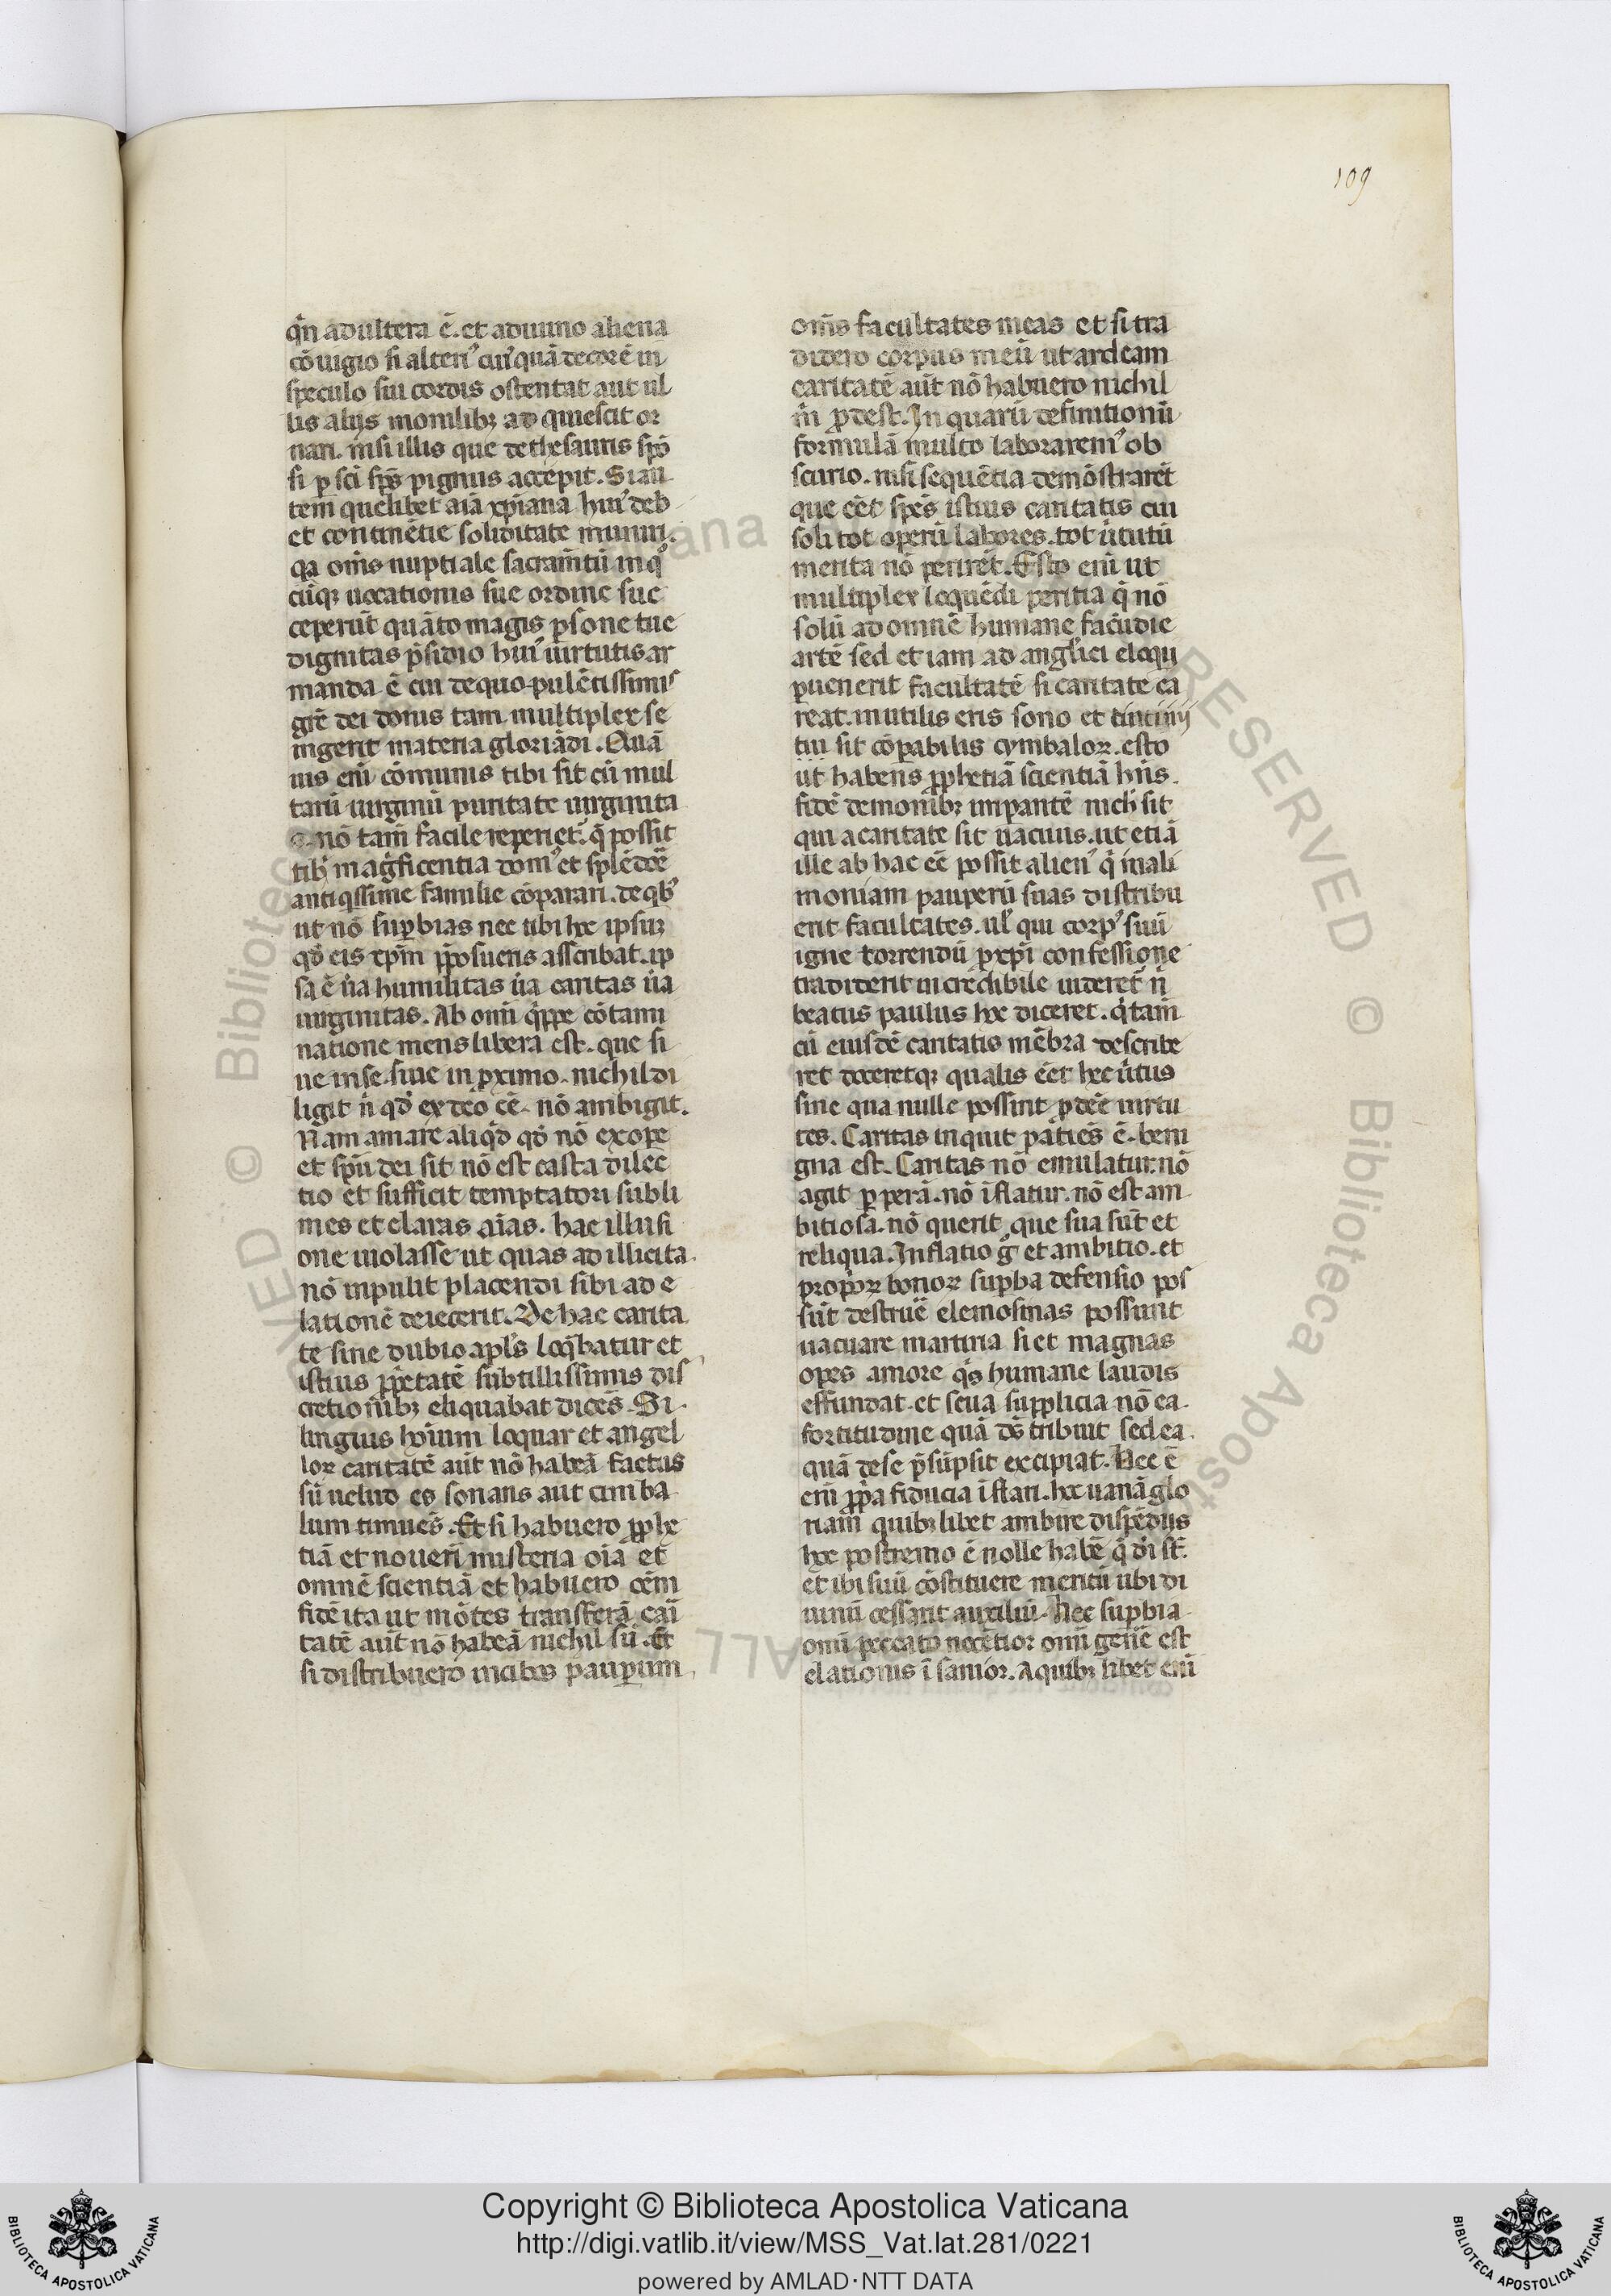 109
qn̄ adultera ē. et adiuino aliena
cōiugio si alteriꝰ cuiꝰquā decorē in
speculo sui cordis ostentat aut ul
lis alijs monilibꝫ ad quiescit or
nari. nisi illis que de thesauris spō
si ꝑ sci sp̄s pignus accepit. Si au
tem quelibet aīa xp̄iana huiꝰ deb
et continētie soliditate muniri.
qa om̄s nuptiale sacram̄tū in qͦ
cūqꝫ uocationis sue ordine sus
ceperūt quāto magis ꝑsone tue
dignitas p̄sidio huiꝰ uirtutis ar
manda ē cui de quo pulētissimis
gr̄e dei donis tam multiplex se
ingerit materia gloriādi. Quā
uis eni cōmunis tibi sit cū mul
tarū uirginū puritate uirginita
s. nō tam̄ facile reperietꝰ. q̄ possit
tibi mag̓ficentia domꝰ et splēdoē
antiq̓ssime familie cōparari. de qbꝰ
ut nō suꝑbias nec ubi hoc ipsuꝫ
qd̓ eis xp̄m p̄posueris asscribat. ip
sa ē ūa humilitas ūa caritas ūa
uirginitas. Ab omi q̓ppe cōtami
natione mens libera est. que si
ue in se siue in ꝓximo. nichil di
ligit n̓ qd̓ ex deo eē. nō ambigit.
Nam amare aliqd̓ qd̓ nō ex ope
et sp̄u dei sit nō est casta dilec
tio et sufficit temptatori subli
mes et claras aīas. hac illusi
one uiolasse ut quas ad illicita
nō inpulit placendi sibi ad e
lationē deiecerit. De hac carita
te sine dubio apl̓s loq̄batur et
istius ꝓp̓etatē subtillissimis dis
cretionibꝫ eliquabat dicēs. Si
linguis hoīum loquar et angel
loꝝ caritatē aūt nō habeā factus
sū uelud es sonans aut cimba
lum tinniēs. Et si habuero ꝓphe
tiā et noueri misteria oīa et
omnē scientiā et habuero oēm
fidē ita ut mōtes transferā cari
tatē aūt nō habeā nichil sū. Et
si distribuero in cibos pauꝑum
om̄s facultates meas et si tra
didero corpus meū ut ardeam
caritatē aūt nō habuero nichil
m̓ ꝓdest. In quarū definitionū
formulā multo laboraremꝰ ob
scurio. nisi sequētia demōstrarēt
que eēt spēs istius caritatis cui
soli tot operū labores. tot ūtutū
merita nō perirēt. Esto eni ut
multiplex loquēdi peritia q̓ nō
solū ad omnē humane facūdie
artē sed et iam ad anglici eloqij
ꝑuenerit facultatē si caritate ca
reat. inutilis eris sono et tinnnij
tiu sit cōꝑabilis cymbaloꝝ. esto
ut habens ꝓphetiā scientiā hn̄s.
fidē demonibꝫ imꝑantē nich̓ sit
qui a caritate sit uacuus. ut etiā
ille ab hac eē possit alienꝰ q̓ in ali
moniam pauperū suas distribu
erit facultates. ul̓ qui corpꝰ suū
igne torrendū ꝓ xp̓i confessione
tradiderit incredibile uideretꝰ n̓
beatus paulus hoc diceret. q̓ tam̄
cū eiusdē caritatis mēbra describe
ret doceretqꝫ qualis eēt hec ūtus
sine qua nulle possint ꝓdeē uirtu
tes. Caritas inquit pātiēs ē. beni
gna est. Caritas nō emulatur. nō
agit ꝑperā. nō īflatur. nō est am
bitiosa. nō querit que sua sūt et
reliqua. Inflatio g̓ et ambitio. et
proprioꝝ bonoꝝ suꝑba defensio pos
sūt destruē elemosinas possunt
uacuare martiria si et magnas
opes amore q̓s humane laudis
effundat. et seua supplicia nō ea
fortitudine quā dꝰ tribuit sed ea
quā de se p̄sūpsit excipiat. Nec ē
eni ꝓpa fiducia īflari. hoc uanā glo
riam quibꝫlibet ambire dispēdijs
hoc postremo ē nolle habē q̓ di st̄.
et ibi suū cōstituere meritū ubi di
uinū cessarit auxiliū. Nec suꝑbia
omi peccato nocētior omi genē est
elationis īsanior. A quibꝫ libet eni
Copyright © Biblioteca Apostolica Vaticana
http://digi.vatlib.it/view/MSS_Vat.lat.281/0221
powered by AMLAD·NTT DATA
BIBLIOTECA APOSTOLICA VATICANA
BIBLIOTECA APOSTOLICA VATICANA